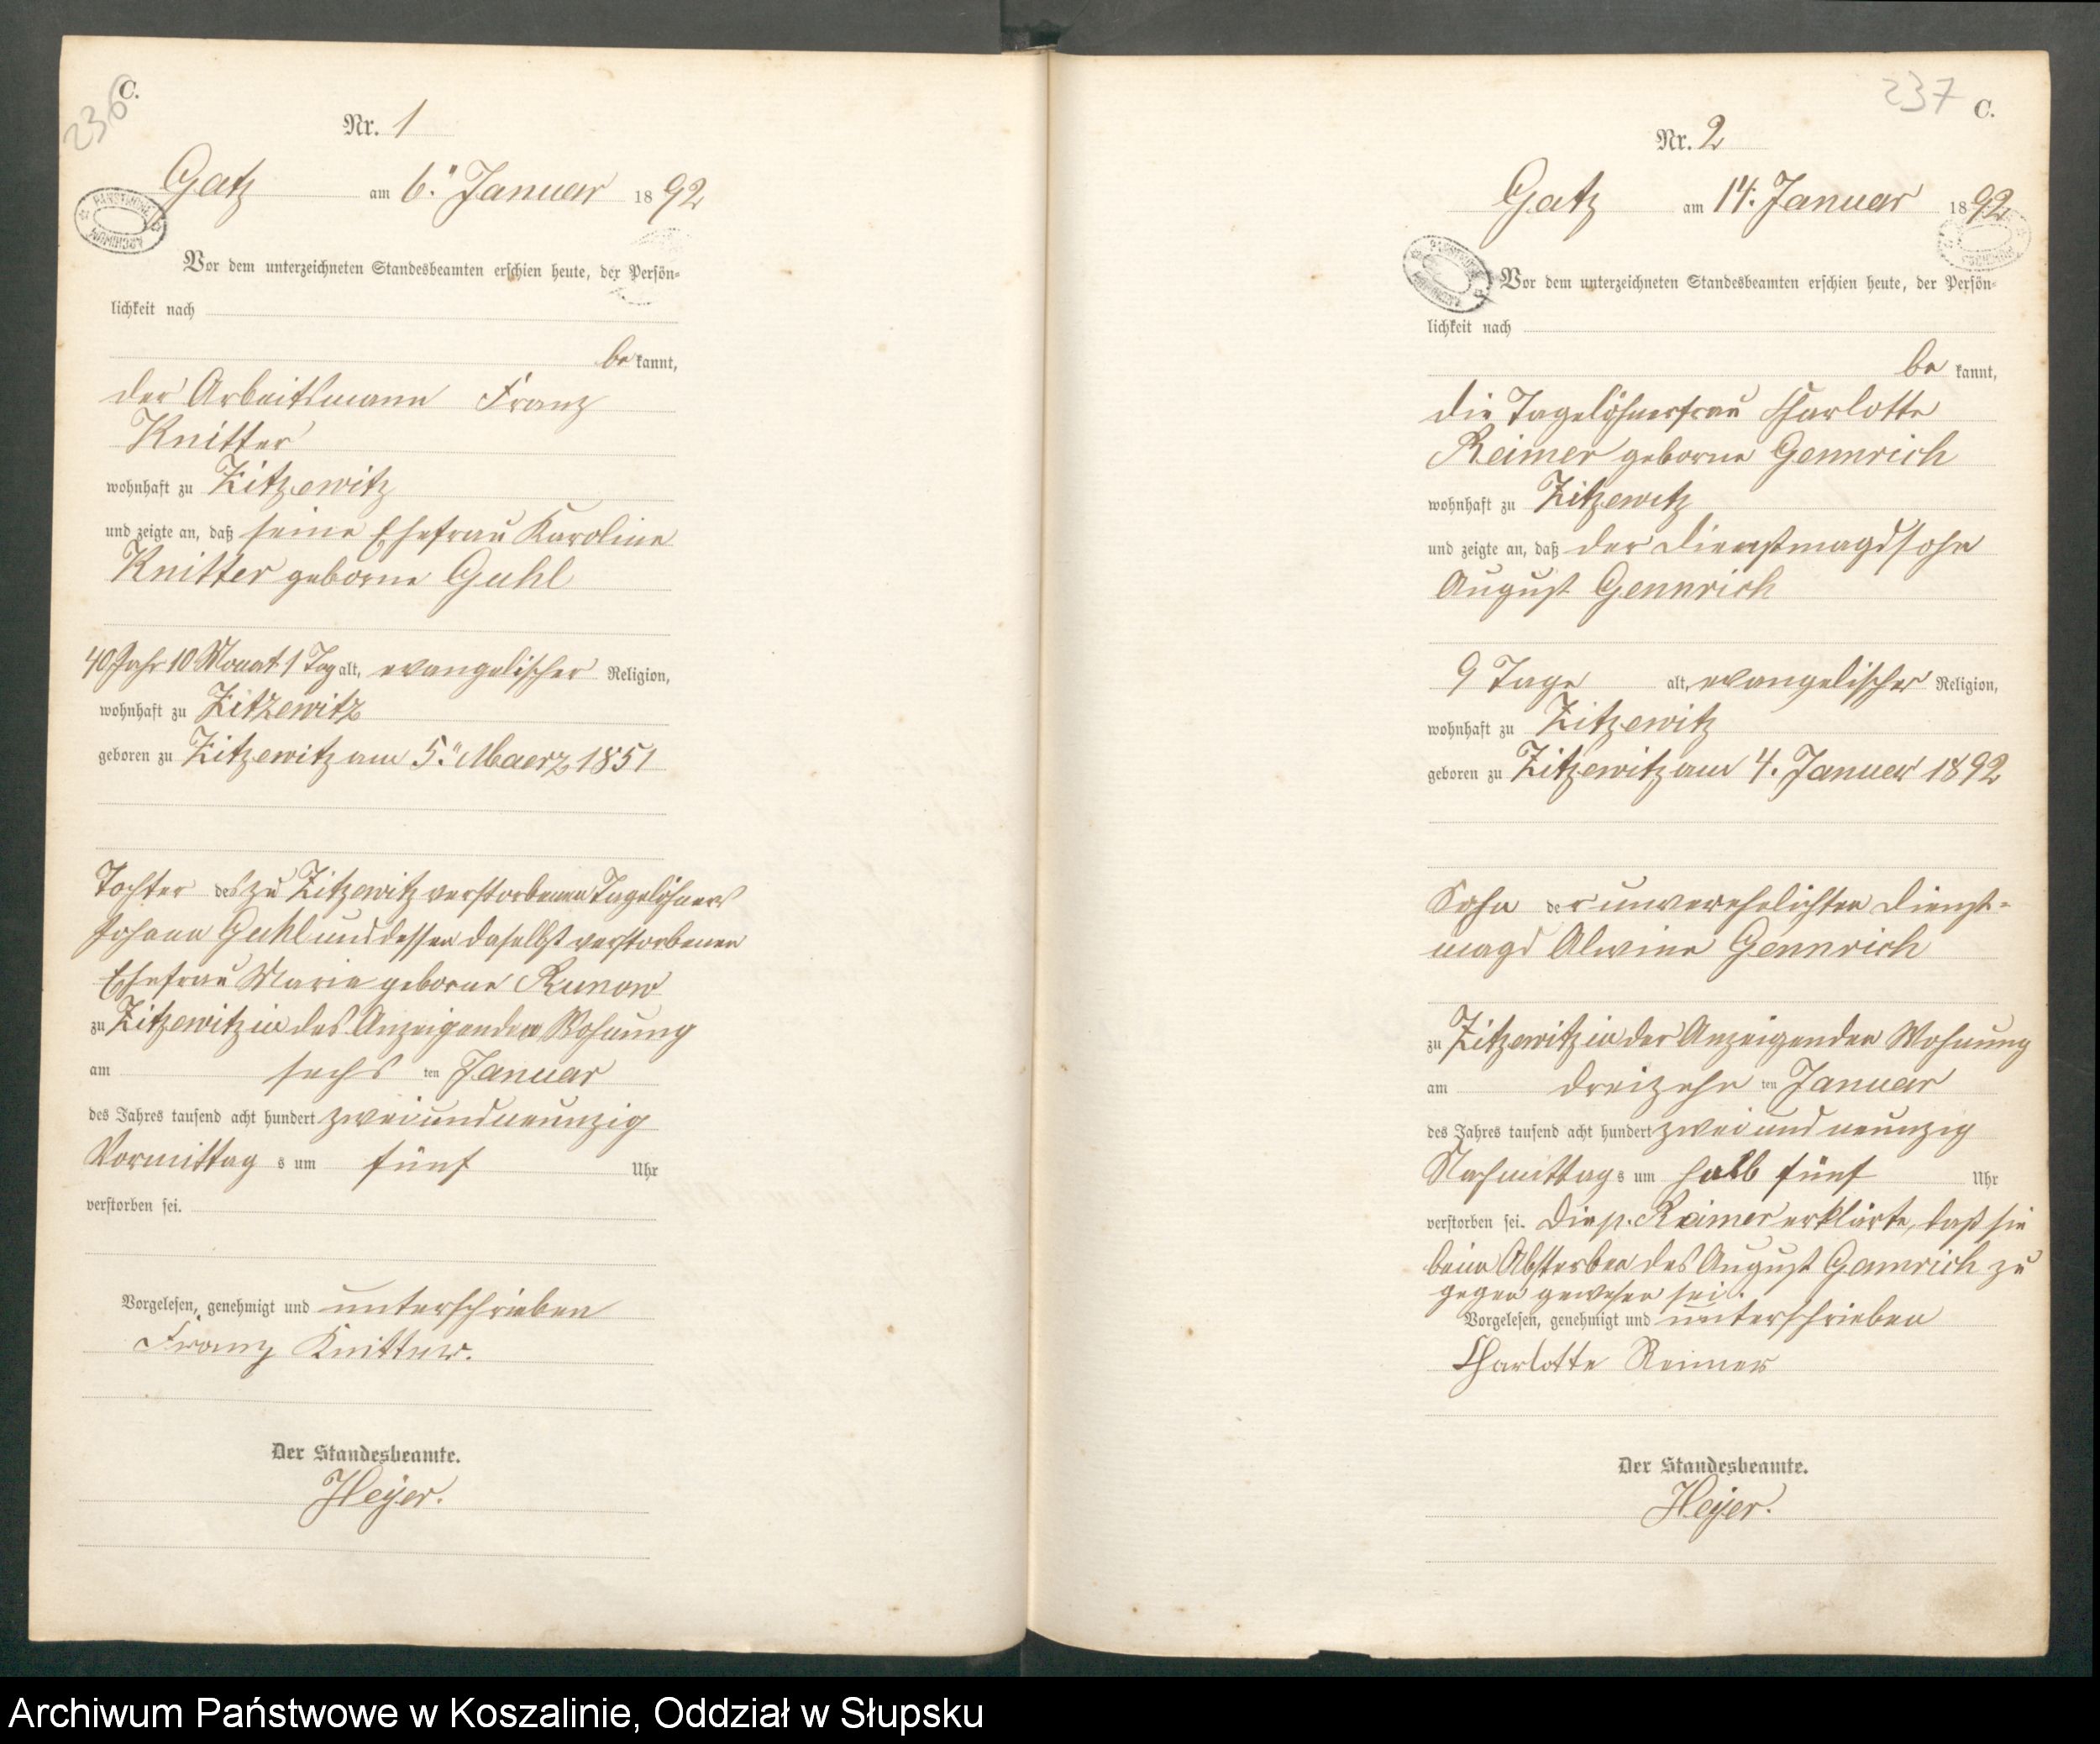 236
C.
Nr. 1
Gatz am 6." Januar 1892
Vor dem unterzeichneten Standesbeamten erschien heute, der Persön-
lichkeit nach
be kannt,
der Arbeitsmann Franz
Knitter
wohnhaft zu Zitzewitz
und zeigte an, daß seine Ehefrau Karoline
Knitter geborne Guhl
40 Jahr 10 Monat 1 Tag alt, evangelischer Religion,
wohnhaft zu Zitzewitz
geboren zu Zitzewitz am 5." Maerz 1851
Tochter des zu Zitzewitz verstorbenen Tagelöhners
Johann Guhl und dessen daselbst verstorbenen
Ehefrau Marie geborne Runow
zu Zitzewitz in des Anzeigenden Wohnung
am sechs ten Januar
des Jahres tausend acht hundert zweiundneunzig
Vormittag s um fünf Uhr
verstorben sei.
Vorgelesen, genehmigt und unterschrieben
Franz Knitter.
Der Standesbeamte.
Heyer.
237
C.
Nr. 2
Gatz am 14. Januar 1892
Vor dem unterzeichneten Standesbeamten erschien heute, der Persön-
lichkeit nach
be kannt,
die Tagelöhnerfrau Charlotte
Reimer geborne Gennrich
wohnhaft zu Zitzewitz
und zeigte an, daß der Dienstmagdsohn
August Gennrich
9 Tage alt, evangelischer Religion,
wohnhaft zu Zitzewitz
geboren zu Zitzewitz am 4. Januar 1892
Sohn der unverehelichten Dienst-
magd Alwine Gennrich
zu Zitzewitz in der Anzeigenden Wohnung
am dreizehn ten Januar
des Jahres tausend acht hundert zwei und neunzig
Nachmittag s um halb fünf Uhr
verstorben sei. Die p. Reimer erklärte, daß sie
beim Absterben des August Gennrich zu
gegen gewesen sei.
Vorgelesen, genehmigt und unterschrieben
Charlotte Reimer
Der Standesbeamte.
Heyer.
Archiwum Państwowe w Koszalinie, Oddział w Słupsku